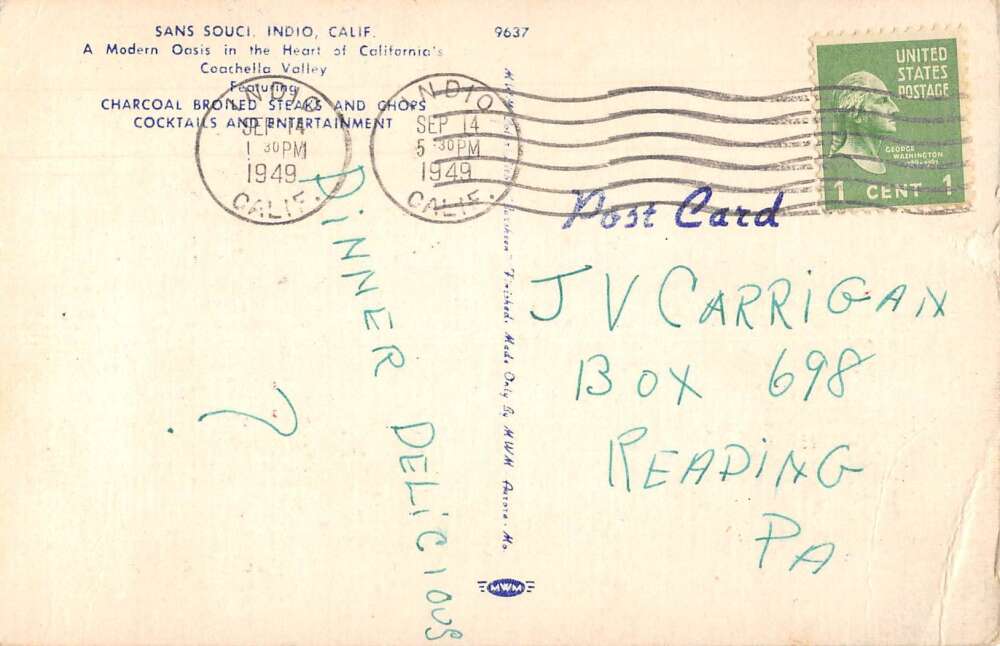 SANS SOUCI. INDIO, CALIF.
A Modern Oasis in the Heart of California's
Coachella Valley
Featuring
CHARCOAL BROILED STEAKS AND CHOPS
COCKTAILS AND ENTERTAINMENT
9637
INDIO
SEP 14
1 30 PM
1949
CALIF.
INDIO
SEP 14
5 30 PM
1949
CALIF.
UNITED
STATES
POSTAGE
GEORGE
WASHINGTON
1789-1797
1 CENT 1
Post Card
DINNER DELICIOUS
?
Finished. Made Only By MWM Aurora. Mo
J V CARRIGAN
BOX 698
READING
PA
MWM